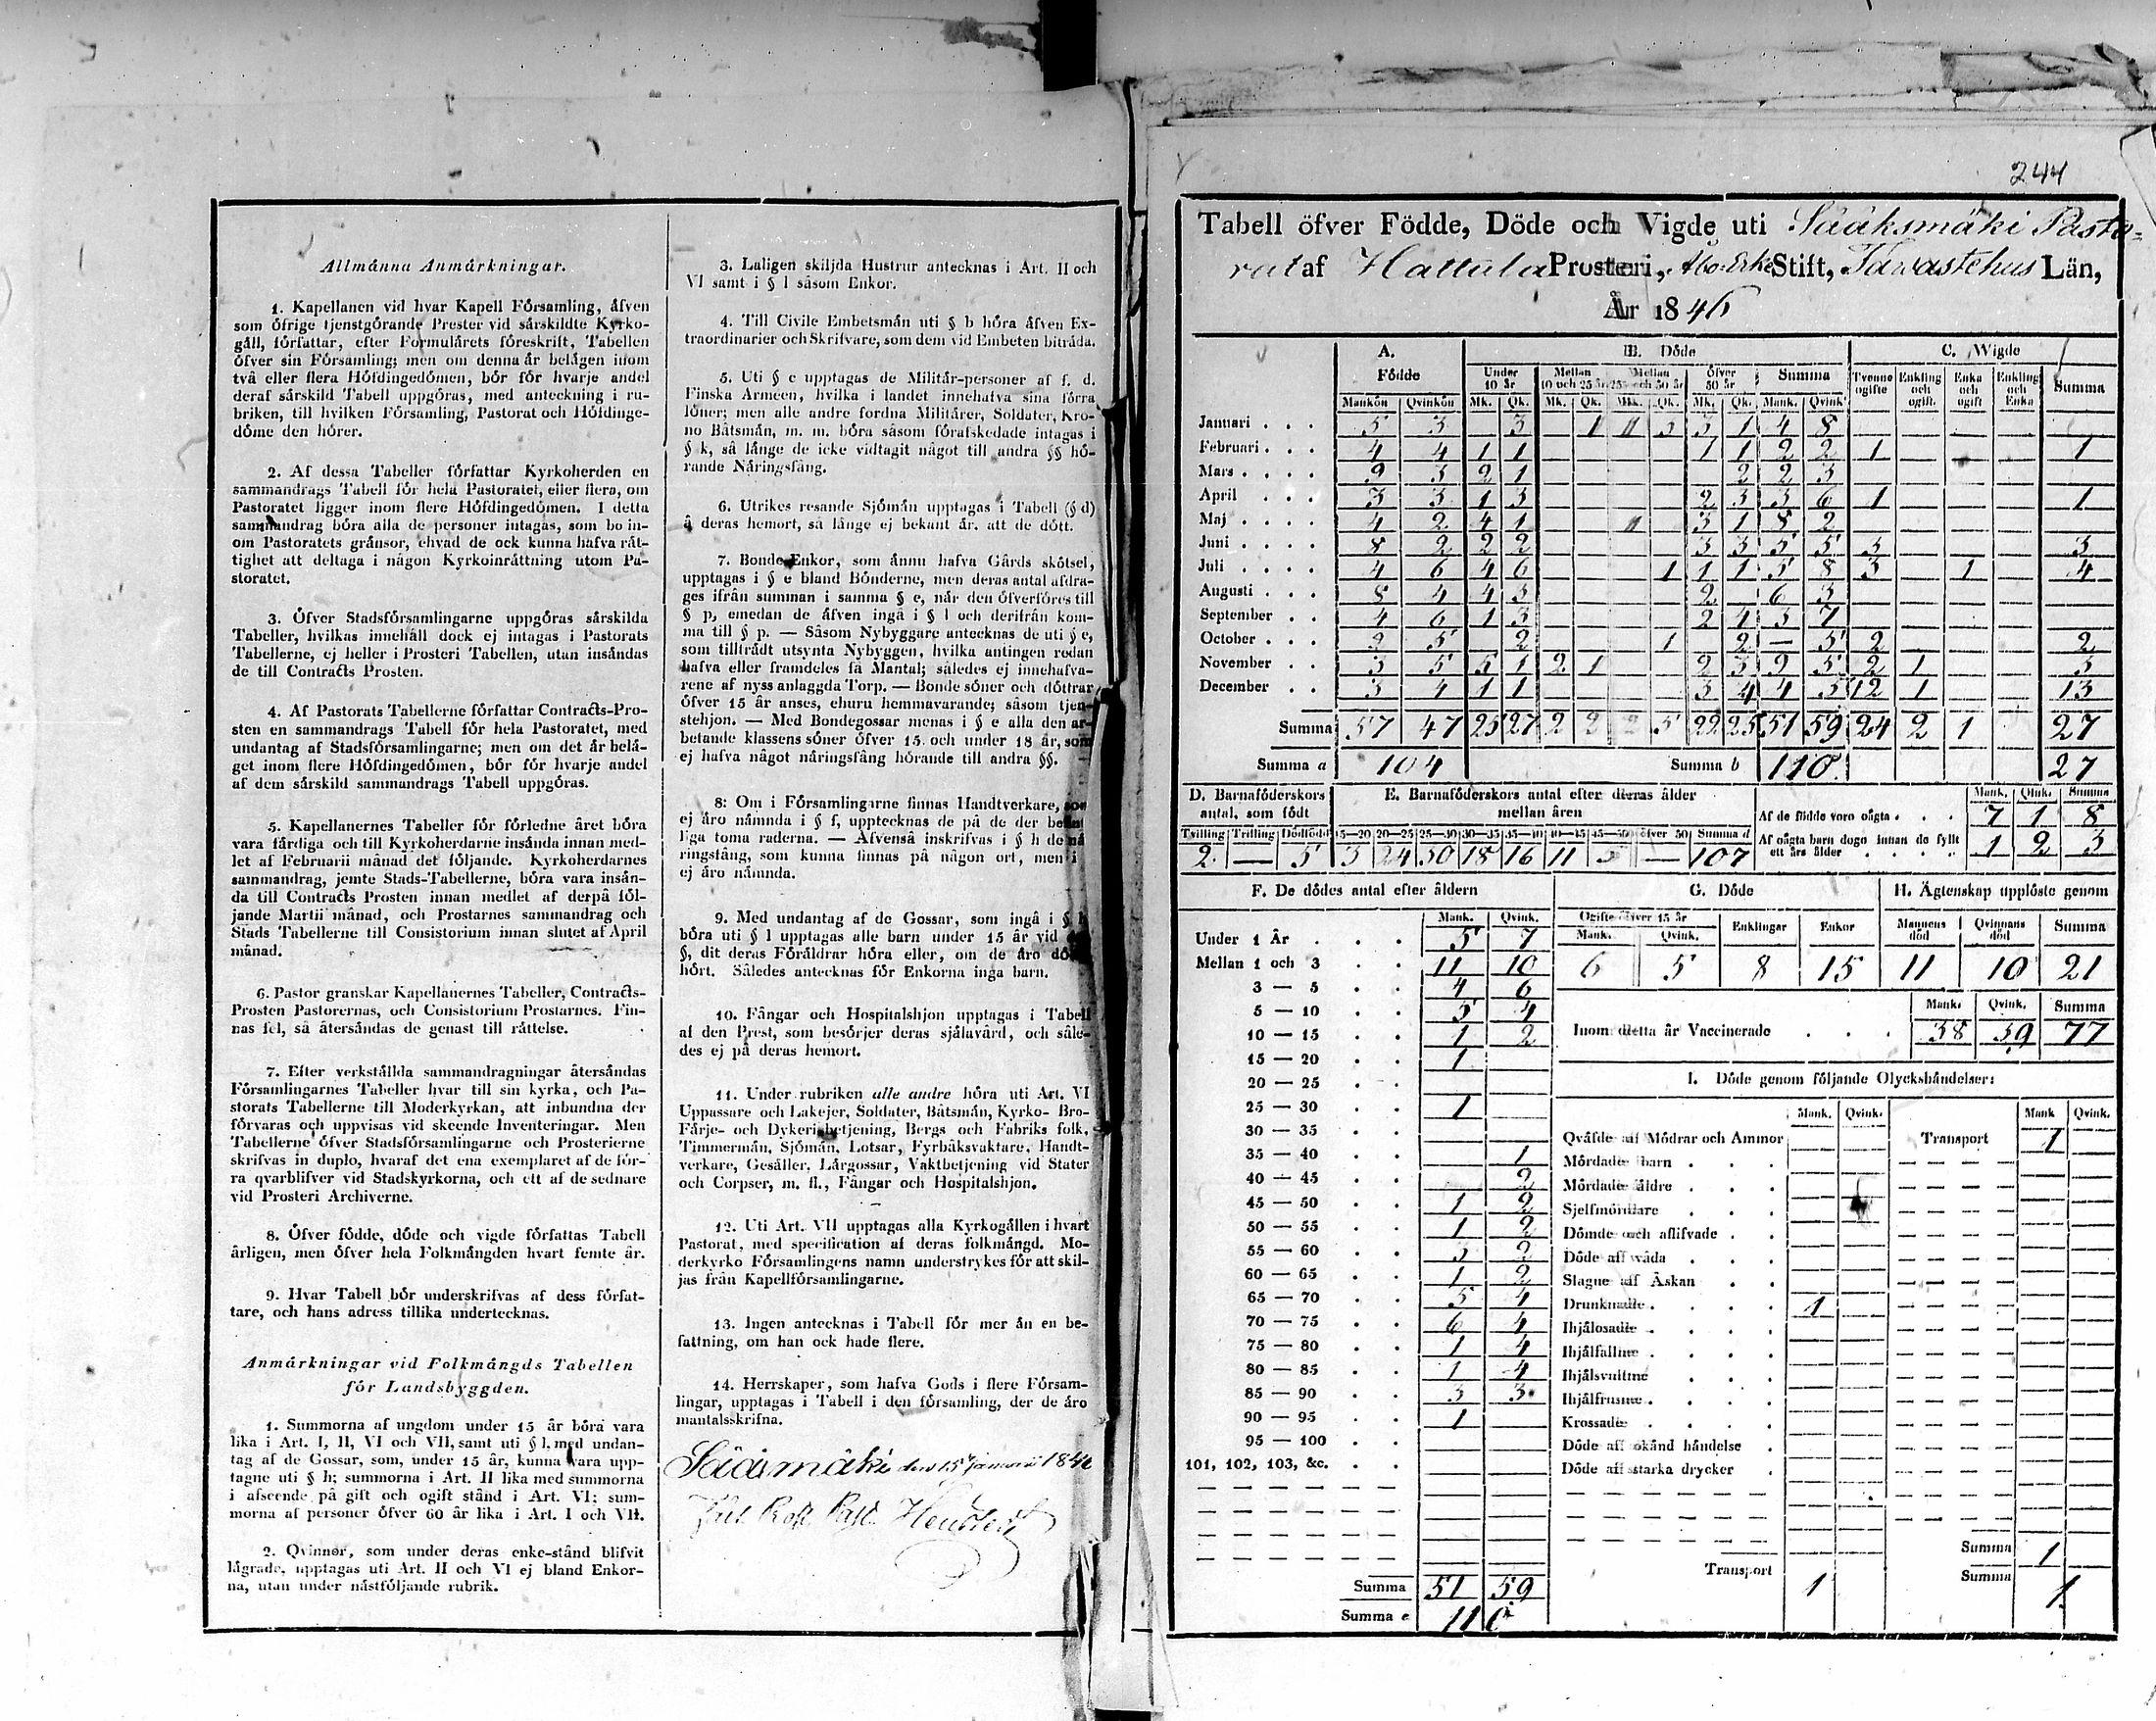 Allmänna Anmärkningar.
1. Kapellanen vid hvar Kapell Församling, äfven
som öfrige tjenstgörande Prester vid särskildte Kyrko-
gäll, författar, efter Formulårets föreskrift, Tabellen
öfver sin Församling; men om denna är belägen inom
två eller flera Höfdingedömen, bör för hvarje andel
deraf särskild Tabell uppgöras, med anteckning i ru-
briken, till hvilken Församling, Pastorat och Höfdinge-
döme den hörer.
2. Af dessa Tabeller författar Kyrkoherden en
sammandrags Tabell för hela Pastoratet, eller flera, om
Pastoratet ligger inom flere Höfdingedömen. I detta
sammandrag böra alla de personer intagas, som bo in-
om Pastoratets gränsor, ehvad de ock kunna hafva rät-
tighet att deltaga i någon Kyrkoinrättning utom Pa-
storatet.
3. Öfver Stadsförsamlingarne uppgöras särskilda
Tabeller, hvilkas innehåll dock ej intagas i Pastorats
Tabellerne, ej heller i Prosteri Tabellen, utan insändas
de till Contracts Prosten.
4. Af Pastorats Tabellerne författar Contracts-Pro-
sten en sammandrags Tabell för hela Pastoratet, med
undantag af Stadsförsamlingarne; men om det är belä-
get inom flere Höfdingedömen, bör för hvarje andel
af dem särskild sammandrags Tabell uppgöras.
5. Kapellanernes Tabeller för förledne året böra
vara färdiga och till Kyrkoherdarne insända innan med-
let af Februarii månad det följande. Kyrkoherdarnes
sammandrag, jemte Stads-Tabellerne, böra vara insän-
da till Contracts Prosten innan medlet af derpå föl-
jande Martii månad, och Prostarnes sammandrag och
Stads Tabellerne till Consistorium innan slutet af April
månad.
6. Pastor granskar Kapellanernes Tabeller, Contracts-
Prosten Pastorernas, och Consistorium Prostarnes. Fin-
nas fel, så återsändas de genast till rättelse.
7. Efter verkställda sammandragningar återsändas
Församlingarnes Tabeller hvar till sin kyrka, och Pa-
storats Tabellerne till Moderkyrkan, att inbundna der
förvaras och uppvisas vid skeende Inventeringar. Men
Tabellerne öfver Stadsförsamlingarne och Prosterierne
skrifvas in duplo, hvaraf det ena exemplaret af de för-
ra qvarblifver vid Stadskyrkorna, och ett af de sednare
vid Prosteri Archiverne.
8. Öfver födde, döde och vigde författas Tabell
årligen, men öfver hela Folkmängden hvart femte år.
9. Hvar Tabell bör underskrifvas af dess förfat-
tare, och hans adress tillika undertecknas.
Anmärkningar vid Folkmängds Tabellen
för Landsbyggden.
1. Summorna af ungdom under 15 år böra vara
lika i Art. I, II, VI och VII, samt uti § l, med undan-
tag af de Gossar, som, under 15 år, kunna vara upp-
tagne uti § h; summorna i Art. II lika med summorna
i afseende på gift och ogift stånd i Art. VI; sum-
morna af personer öfver 60 år lika i Art. I och VII.
2. Qvinnor, som under deras enke-stånd blifvit
lägrade, upptagas uti Art. II och VI ej bland Enkor-
na, utan under nästföljande rubrik.
3. Laligen skiljda Hustrur antecknas i Art. II och
VI samt i § l såsom Enkor.
4. Till Civile Embetsmän uti § b höra äfven Ex-
traordinarier och Skrifvare, som dem vid Embeten biträda.
5. Uti § c upptagas de Militär-personer af f. d.
Finska Armeen, hvilka i landet innehafva sina förra
löner; men alle andre fordna Militärer, Soldater, Kro-
no Båtsmän, m. m. böra såsom förafskedade intagas i
§ k, så länge de icke vidtagit något till andra §§ hö-
rande Näringsfång.
6. Utrikes resande Sjömän upptagas i Tabell (§ d)
å deras hemort, så länge ej bekant är, att de dött.
7. Bonde Enkor, som ännu hafva Gårds skötsel,
upptagas i § e bland Bönderne, men deras antal afdra-
ges ifrån summan i samma § e, när den öfverföres till
§ p, emedan de äfven ingå i § l och derifrån kom-
ma till § p. — Såsom Nybyggare antecknas de uti § e,
som tillträdt utsynta Nybyggen, hvilka antingen redan
hafva eller framdeles få Mantal; således ej innehafva-
rene af nyss anlaggda Torp. — Bonde söner och döttrar
öfver 15 år anses, ehuru hemmavarande, såsom tjen-
stehjon. — Med Bondegossar menas i § e alla den ar-
betande klassens söner öfver 15 och under 18 år, som
ej hafva något näringsfång hörande till andra §§.
8: Om i Församlingarne finnas Handtverkare, som
ej äro nämnda i § f, upptecknas de på de der
liga toma raderna. — Äfvenså inskrifvas i § h de nä
ringsfång, som kunna finnas på någon ort, men i
ej äro nämnda.
9. Med undantag af de Gossar, som ingå i §
böra uti § l upptagas alle barn under 15 år vid
§, dit deras Föräldrar höra eller, om de äro
hört. Således antecknas för Enkorna inga barn.
10. Fångar och Hospitalshjon upptagas i Tabell
af den Prest, som besörjer deras själavård, och såle-
des ej på deras hemort.
11. Under rubriken alle andre höra uti Art. VI
Uppassare och Lakejer, Soldater, Båtsmän, Kyrko- Bro-
Färje- och Dykeribetjening, Bergs och Fabriks folk,
Timmermän, Sjömän, Lotsar, Fyrbåksvaktare, Handt-
verkare, Gesäller, Lärgossar, Vaktbetjening vid Stater
och Corpser, m. fl., Fångar och Hospitalshjon.
12. Uti Art. VII upptagas alla Kyrkogällen i hvart
Pastorat, med specification af deras folkmängd. Mo-
derkyrko Församlingens namn understrykes för att skil-
jas från Kapellförsamlingarne.
13. Ingen antecknas i Tabell för mer än en be-
fattning, om han ock hade flere.
14. Herrskaper, som hafva Gods i flere Försam-
lingar, upptagas i Tabell i den församling, der de äro
mantalsskrifna.
den 15 januari 184
244
Tabell öfver Födde, Döde och Vigde uti Sääksmäki Pasto-
rat af Hattula Prosteri, Åbo Erke Stift, Tawastehus Län,
År 1846
A. B. Döde C. Wigde
Födde Under 10 år Mellan 10 och 25 år Mellan 25 och 50 år Öfver 50 år Summa Tvenne ogifte Enkling och ogift. Enka och ogift Enkling och Enka Summa
Mankön Qvinkön Mk. Qk. Mk. Qk. Mk. Qk. Mk. Qk. Mank. Qvink
Januari . . . 5 3 3 1 11 3 3 1 4 8
Februari . . . 4 4 1 1 1 1 2 2 1 1
Mars . . . 9 3 2 1 2 2 3
April . . . 3 3 1 3 2 3 3 6 1 1
Maj . . . 4 2 4 1 11 3 1 8 2
Juni . . . 8 2 2 2 3 3 5 5 3 3
Juli . . . 4 6 4 6 1 1 1 5 8 3 1 4
Augusti . . . 8 4 4 3 2 6 3
September . . 4 6 1 3 2 4 3 7
October . . . 2 5 2 1 2 — 5 2 2
November . . 3 5 5 1 2 1 2 3 9 5 2 1 3
December . . 3 4 1 1 3 4 4 5 12 1 13
Summa 57 47 25 27 2 2 2 5 22 25 51 59 24 2 1 27
Summa a 104 Summa b 110. 27
D. Barnaföderskors antal, som födt
Tvilling Trilling Dödfödd
2 — 5
E. Barnaföderskors antal efter deras ålder
mellan åren
15—20 20—25 25—30 30—35 35—40 40—45 45—50 öfver 50 Summa d
3 24 30 18 16 11 5 — 107
Mank. Qvink. Summa
Af de födde voro oägta . . . 7 1 8
Af oägta barn dogo innan de fyllt
ett års ålder . . . . 1 2 3
F. De dödes antal efter åldern
Mank. Qvink.
Under 1 År . . . 5 7
Mellan 1 och 3 . . 11 10
3 — 5 . . 4 6
5 — 10 . . 5 4
10 — 15 . . 1 2
15 — 20 . . 1
20 — 25 . .
25 — 30 . . 1
30 — 35 . .
35 — 40 . . 1
40 — 45 . . 2
45 — 50 . . 1 2
50 — 55 . . 1 2
55 — 60 . . 3 2
60 — 65 . . 1 2
65 — 70 . . 5 4
70 — 75 . . 6 4
75 — 80 . . 1 4
80 — 85 . . 1 4
85 — 90 . . 3 3
90 — 95 . . 1
95 — 100 . .
101, 102, 103, &c. . .
Summa 51 59
Summa e 110
G. Döde
Ogifte öfver 15 år Enklingar Enkor
Mank. Qvink.
6 5 8 15
H. Ägtenskap upplöste genom
Mannens död Qvinnans död Summa
11 10 21
Mank. Qvink. Summa
Inom detta år Vaccinerade . . . 38 39 77
I. Döde genom följande Olyckshändelser:
Mank. Qvink. Mank Qvink.
Qväfde af Mödrar och Ammor Transport 1
Mördade barn . . .
Mördade äldre . . .
Sjelfmördare . . .
Dömde och aflifvade . .
Döde af wåda . . .
Slagne af Åskan . .
Drunknade . . . . 1
Ihjälosade . . . .
Ihjälfallne . . . .
Ihjälsvultne . . .
Ihjälfrusne . . . .
Krossade . . . .
Döde af okänd händelse .
Döde af starka drycker .
Summa 1
Transport 1 Summa 1.